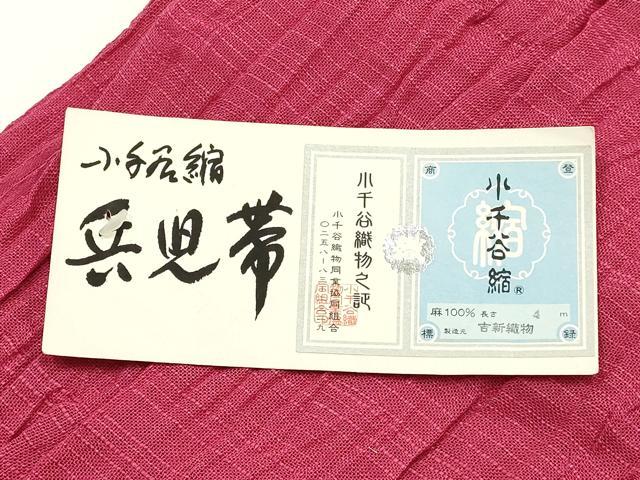 小千谷縮
兵児帯
小千谷織物之証
小千谷織物同業協同組合
登録商標
縮
小千谷縮®
麻100% 長さ 4 m
製造元 吉新織物